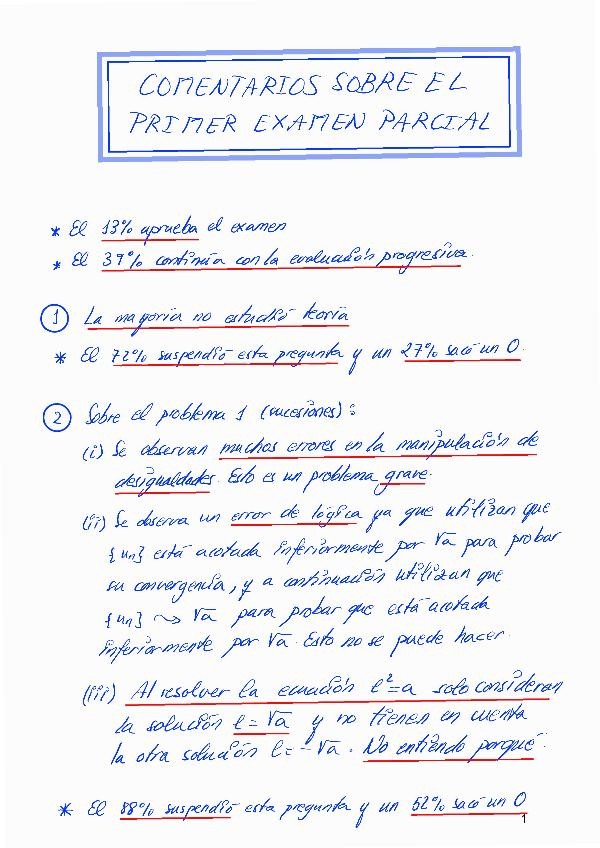 COMENTARIOS SOBRE EL
PRIMER EXAMEN PARCIAL
* El 13% aprueba el examen
* El 39% continúa con la evaluación progresiva.
1 La mayoría no estudió teoría
* El 72% suspendió esta pregunta y un 27% sacó un 0.
2 Sobre el problema 1 (sucesiones):
(i) Se observan muchos errores en la manipulación de
desigualdades. Esto es un problema grave.
(ii) Se observa un error de lógica ya que utilizan que
{un} está acotada inferiormente por √a para probar
su convergencia, y a continuación utilizan que
{un} ⇝ √a para probar que está acotada
inferiormente por √a. Esto no se puede hacer.
(iii) Al resolver la ecuación l²=a solo consideran
la solución l=√a y no tienen en cuenta
la otra solución l=-√a. No entiendo porqué.
* El 88% suspendió esta pregunta y un 52% sacó un 0
1